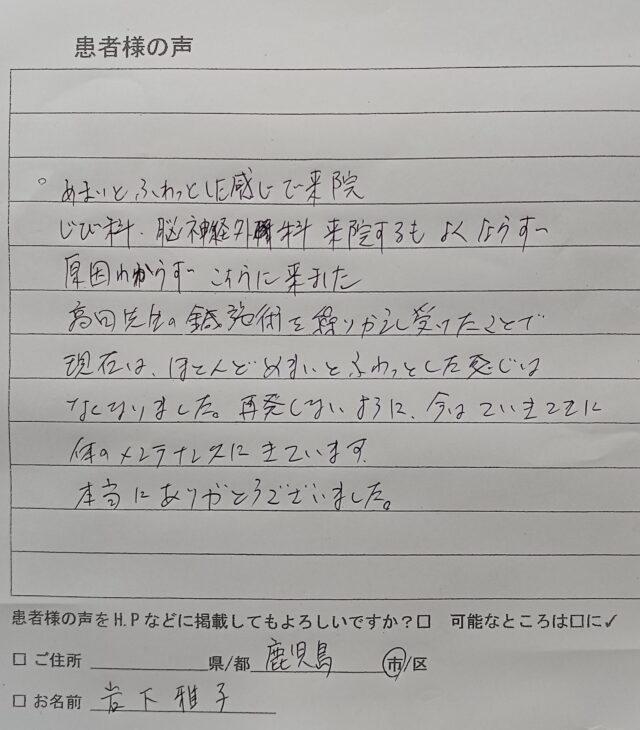 患者様の声
。めまいとふわっとした感じで来院
じび科.脳神経外科 来院するもよくならず
原因わからず こちらに来ました
高田先生の鍼施術を繰りかえし受けたことで
現在は、ほとんどめまいとふわっとした感じは
なくなりました。再発しないように、今はていきてきに
体のメンテナンスにきています。
本当にありがとうございました。
患者様の声をH.Pなどに掲載してもよろしいですか?□ 可能なところは□に✓
□ ご住所 県/都 鹿児島 市/区
□ お名前 岩下 雅子